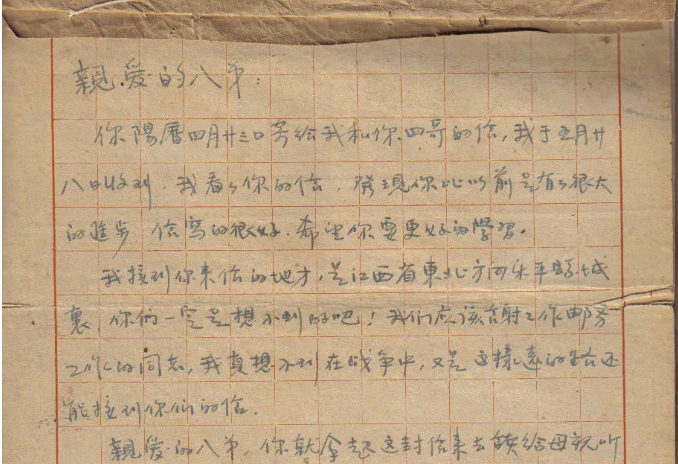 親爱的八弟：
你陽曆四月廿三日寄給我和你四哥的信，我于五月廿
八日收到．我看了你的信，發現你比以前是有了很大
的進步，信寫的很好．希望你要更好的學習。
我接到你来信的地方，是江西省東北方向乐平縣城
裏，你們一定是想不到的吧！我们应该謝謝工作邮务
工作的同志，我真想不到在战争中，又是这樣遠的路还
能接到你们的信．
親爱的八弟，你就拿起这封信来去读給母親听